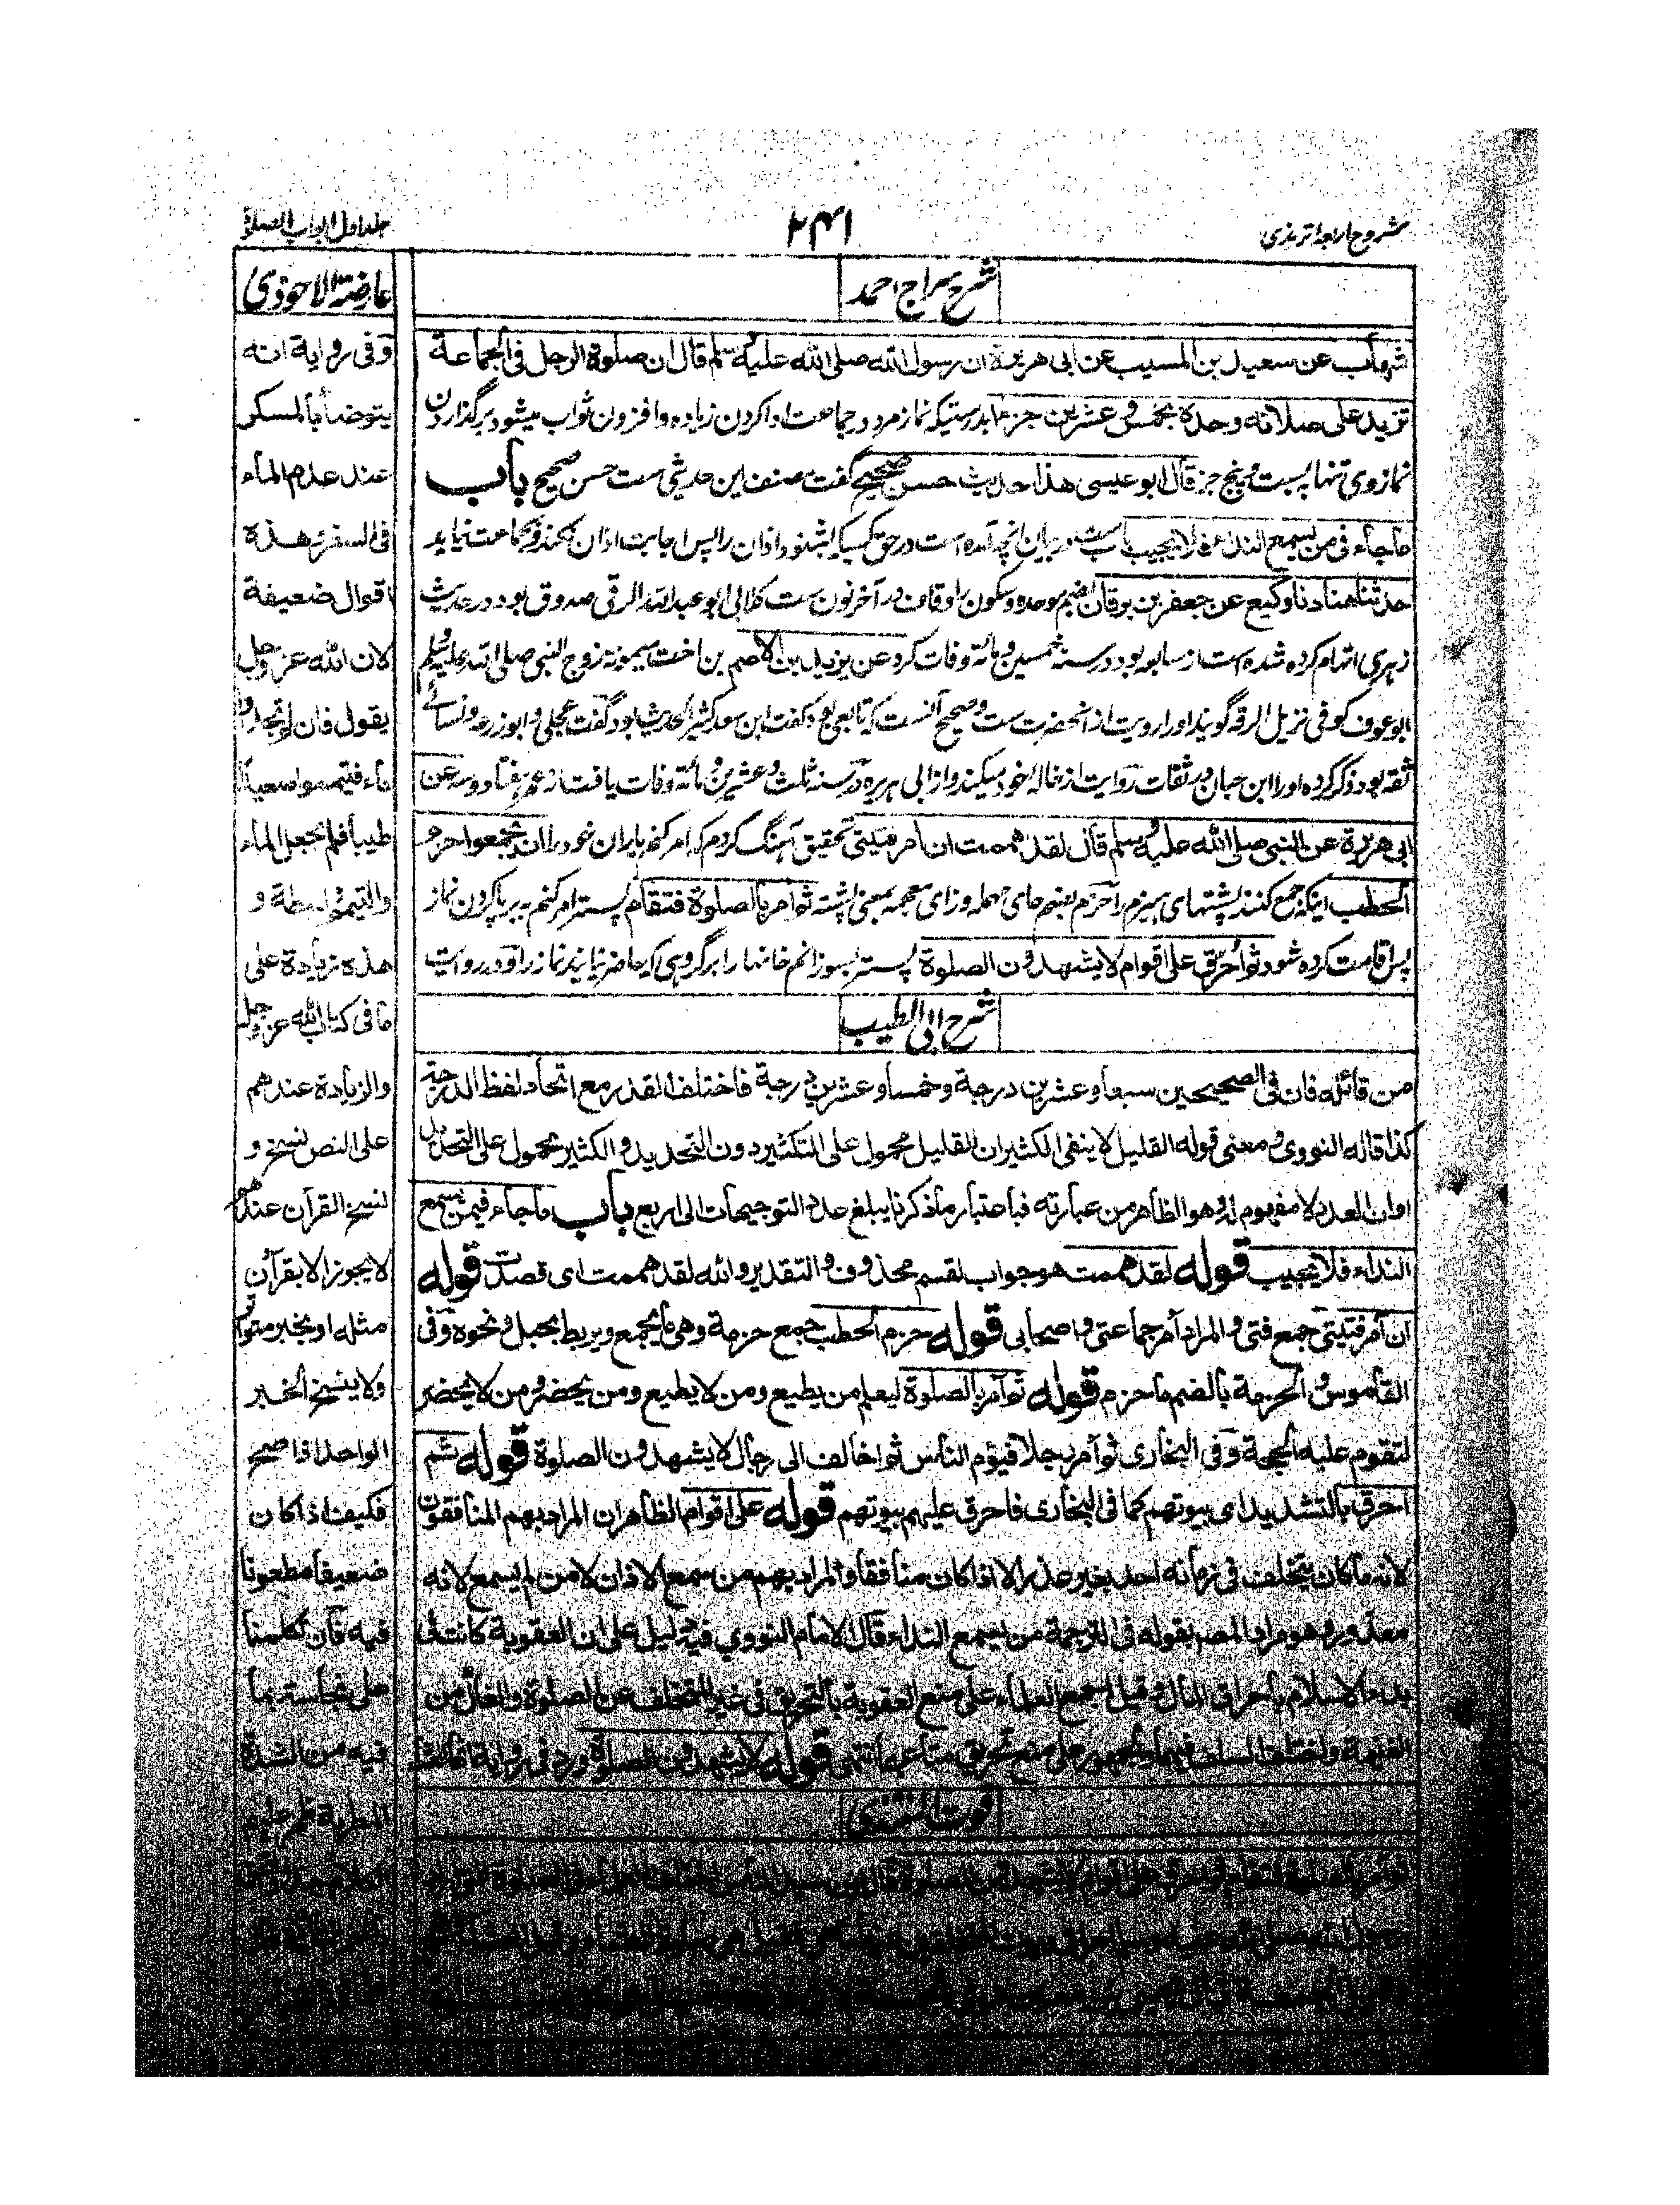 شروح اربعه ترمذی
۲۴۱
جلد اول ابواب الصلوة
شرح سراج احمد
شهاب عن سعيد بن المسيب عن ابی هريرة ان رسول الله صلی الله عليه وسلم قال ان صلوة الرجل فی الجماعة
تزيد علی صلاته وحده بخمس وعشرين جزءا بدرستیکه نماز مرد در جماعت ادا کردن زیاده و افزون ثواب میشود بر گذاردن
نماز وی تنها ببست و پنج جز قال ابو عيسی هذا حديث حسن صحيح گفت مصنف این حدیثی ست حسن صحیح باب
ما جاء فی من يسمع النداء فلا يجيب باب ست در بیان انچه آمده است در حق کسیکه بشنود اذان را پس اجابت اذان نکند و بجماعت نیاید
حدثنا هناد نا وكيع عن جعفر بن برقان بضم موحده و سکون را و قاف در آخر نون ست کلابی ابو عبد الله الرقی صدوق بود در حدیث
زهری اتهام کرده شده است از سابعه بود در سنه خمسین و مائة وفات کرد عن يزيد بن الاصم بن اخت میمونه زوج النبی صلی الله علیه وسلم
ابو عوف کوفی نزیل الرقه گویند او را رویت از آنحضرت ست و صحیح آنست که تابعی بود گفت ابن سعد کثیر الحدیث بود گفت عجلی و ابو زرعه و نسائے
ثقه بود ذکر کرده او را ابن حبان در ثقات روایت از خاله خود میکند و از ابی هریره در سنه ثلث و عشرین و مائة وفات یافت از عمر هفتاد و سه عن
ابی هريرة عن النبی صلی الله عليه وسلم قال لقد هممت ان آمر فتيتی تحقیق آهنگ کردم که امر کنم یاران خود را ان يجمعوا حزم
الحطب اینکه جمع کنند پشتهای هیزم را حزم بضم حای مهمله و زای معجمه بمعنی پشته ثم آمر بالصلوة فتقام پستر امر کنم به برپا کردن نماز
پس اقامت کرده شود ثم احرق علی اقوام لا يشهدون الصلوة پستر بسوزانم خانها را بر گروهی که حاضر نیایند نماز را و در روایت
شرح ابی الطيب
من قائله فان فی الصحيحين سبعا وعشرين درجة وخمسا وعشرين درجة فاختلف القدر مع اتحاد لفظ الدرجة
كذا قاله النووی ومعنی قوله القليل لا ينفی الكثير ان القليل محمول علی التكثير دون التحديد والكثير محمول علی التحديد
او ان العدد لا مفهوم له وهو الظاهر من عبارته فباعتبار ما ذكرنا يبلغ عدد التوجيهات الی اربع باب ما جاء فيمن يسمع
النداء فلا يجيب قوله لقد هممت هو جواب لقسم محذوف والتقدير والله لقد هممت ای قصدت قوله
ان آمر فتيتی جمع فتی والمراد آمر جماعتی واصحابی قوله حزم الحطب جمع حزمة وهی ما يجمع ويربط بحبل ونحوه وفی
القاموس والحزمة بالضم ما حزم قوله ثم آمر بالصلوة ليعلم من يطيع ومن لا يطيع ومن يحضر ومن لا يحضر
لتقوم عليه الحجة وفی البخاری ثم آمر رجلا فيؤم الناس ثم اخالف الی رجال لا يشهدون الصلوة قوله ثم
احرق بالتشديد ای بيوتهم كما فی البخاری فاحرق عليهم بيوتهم قوله علی اقوام الظاهر ان المراد بهم المنافقون
لانه ما كان يتخلف فی زمانه احد بغير عذر الا اذا كان منافقا والمراد بهم من سمع الاذان لا من لم يسمع لانه
معذور وهو مراد المصـ بقوله فی الترجمة من يسمع النداء قال الامام النووی فيه دليل علی ان العقوبة كانت فی
بدء الاسلام باحراق المال وقيل اجمع العلماء علی منع العقوبة بالتحريق فی غير المتخلف عن الصلوة والغال من
الغنيمة واختلف السلف فيهما والجمهور علی منع تحريق متاعهما انتهی قوله لا يشهدون الصلوة ورد فی رواية
قوت المغتذی
عارضة الاحوذی
وفی رواية انه
يتوضأ بالمسكر
عند عدم الماء
فی السفر وهذه
اقوال ضعيفة
لان الله عز وجل
يقول فان لم تجدوا
ماء فتيمموا صعيدا
طيبا فلم يجعل الماء
والتيمم واسطة و
هذه زيادة علی
ما فی كتاب الله عز وجل
والزيادة عندهم
علی النص نسخ و
نسخ القرآن عندهم
لا يجوز الا بقرآن
مثله او بخبر متواتر
ولا ينسخ الخبر
الواحد اذا صح
فكيف اذا كان
ضعيفا مطعونا
فيه فان تكلمنا
علی نجاسته بما
فيه من الشدة